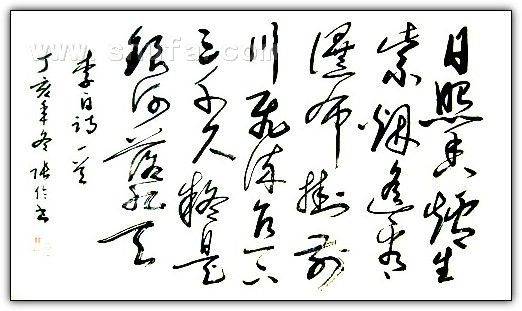 日照香爐生
紫烟遙看
瀑布掛前
川飛流直下
三千尺疑是
銀河落九天
李白詩一首
丁亥年冬